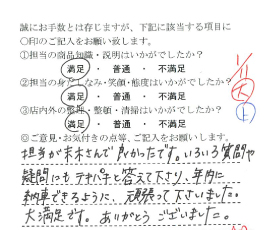 誠にお手数とは存じますが、下記に該当する項目に
○印のご記入をお願い致します。
①担当の商品知識・説明はいかがでしたか？
満足 ・ 普通 ・ 不満足
②担当の身だしなみ・笑顔・態度はいかがでしたか？
満足 ・ 普通 ・ 不満足
③店内外の整理・整頓・清掃はいかがでしたか？
満足 ・ 普通 ・ 不満足
◎ご意見・お気付きの点等、ご記入をお願いします。
担当が末木さんで良かったです。いろいろ質問や
疑問にもテキパキと答えて下さり、年内に
納車できるように、頑張って下さいました。
大満足です。ありがとうございました。
1/11
大